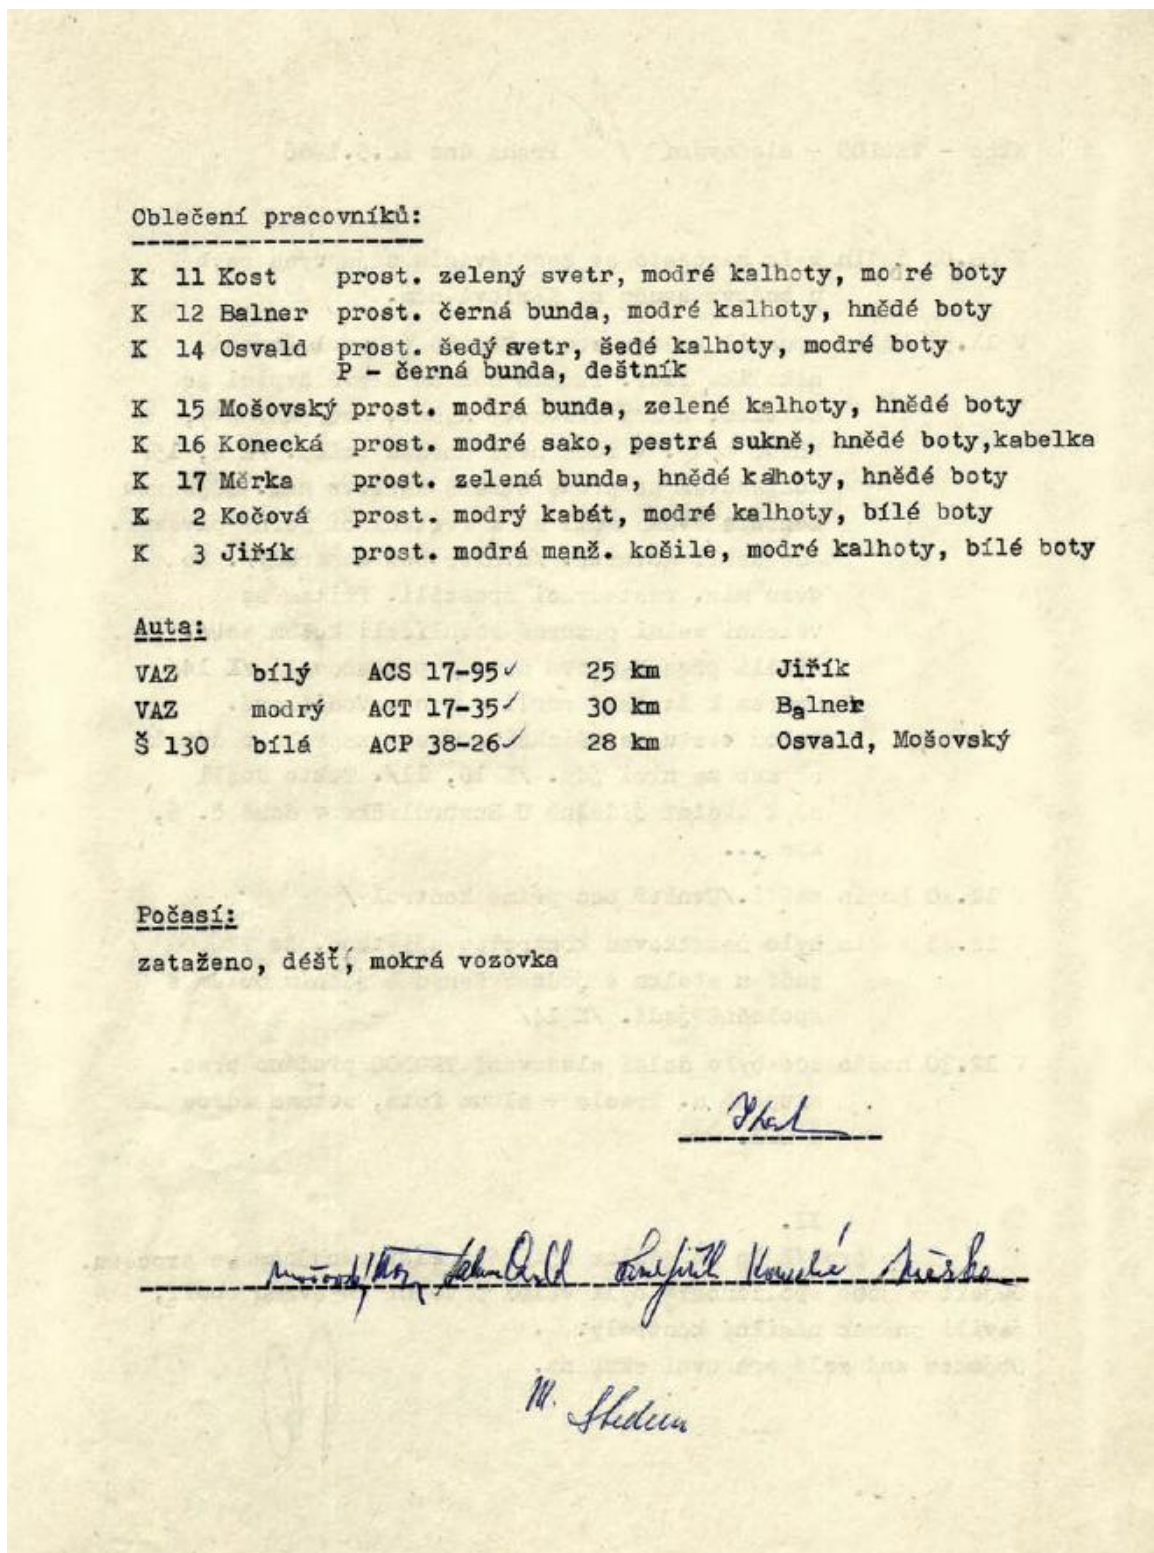 Oblečení pracovníků:
K 11 Kost prost. zelený svetr, modré kalhoty, modré boty
K 12 Balner prost. černá bunda, modré kalhoty, hnědé boty
K 14 Osvald prost. šedý svetr, šedé kalhoty, modré boty
P - černá bunda, deštník
K 15 Mošovský prost. modrá bunda, zelené kalhoty, hnědé boty
K 16 Konecká prost. modré sako, pestrá sukně, hnědé boty,kabelka
K 17 Měrka prost. zelená bunda, hnědé kalhoty, hnědé boty
K 2 Kočová prost. modrý kabát, modré kalhoty, bílé boty
K 3 Jiřík prost. modrá manž. košile, modré kalhoty, bílé boty
Auta:
VAZ bílý ACS 17-95 25 km Jiřík
VAZ modrý ACT 17-35 30 km Balner
Š 130 bílá ACP 38-26 28 km Osvald, Mošovský
Počasí:
zataženo, déšť, mokrá vozovka